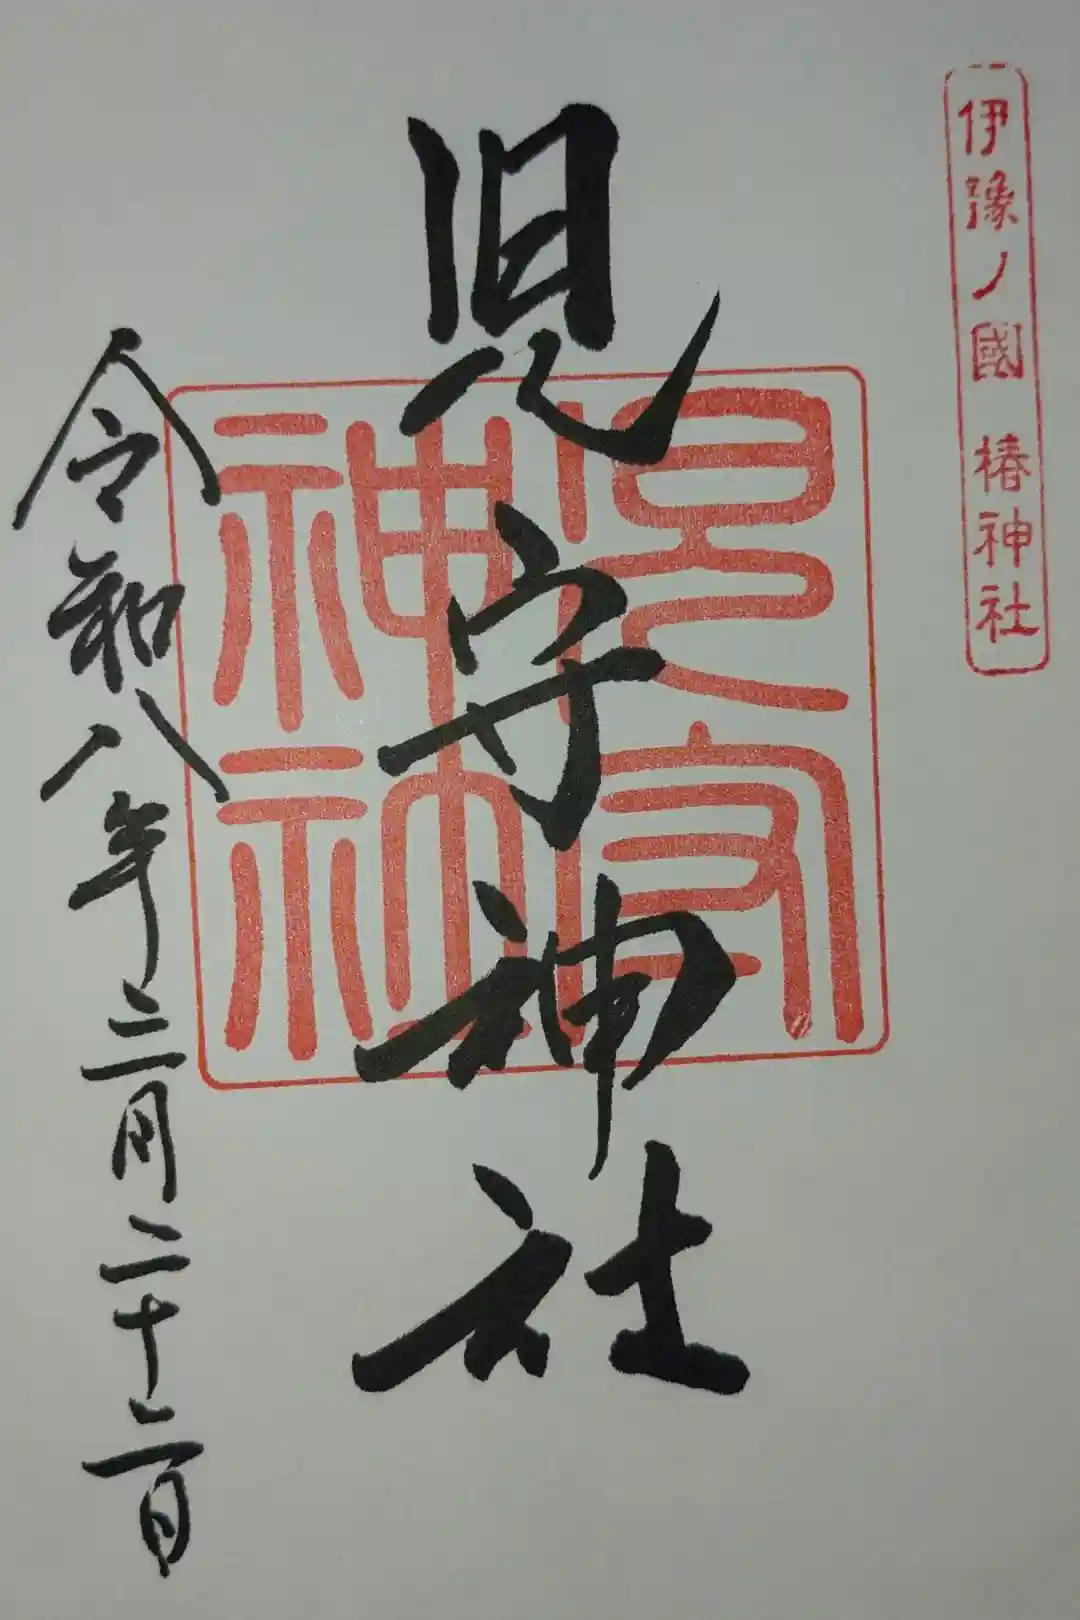 伊豫ノ國 椿神社
児守神社
児守
神社
令和八年三月二十二日